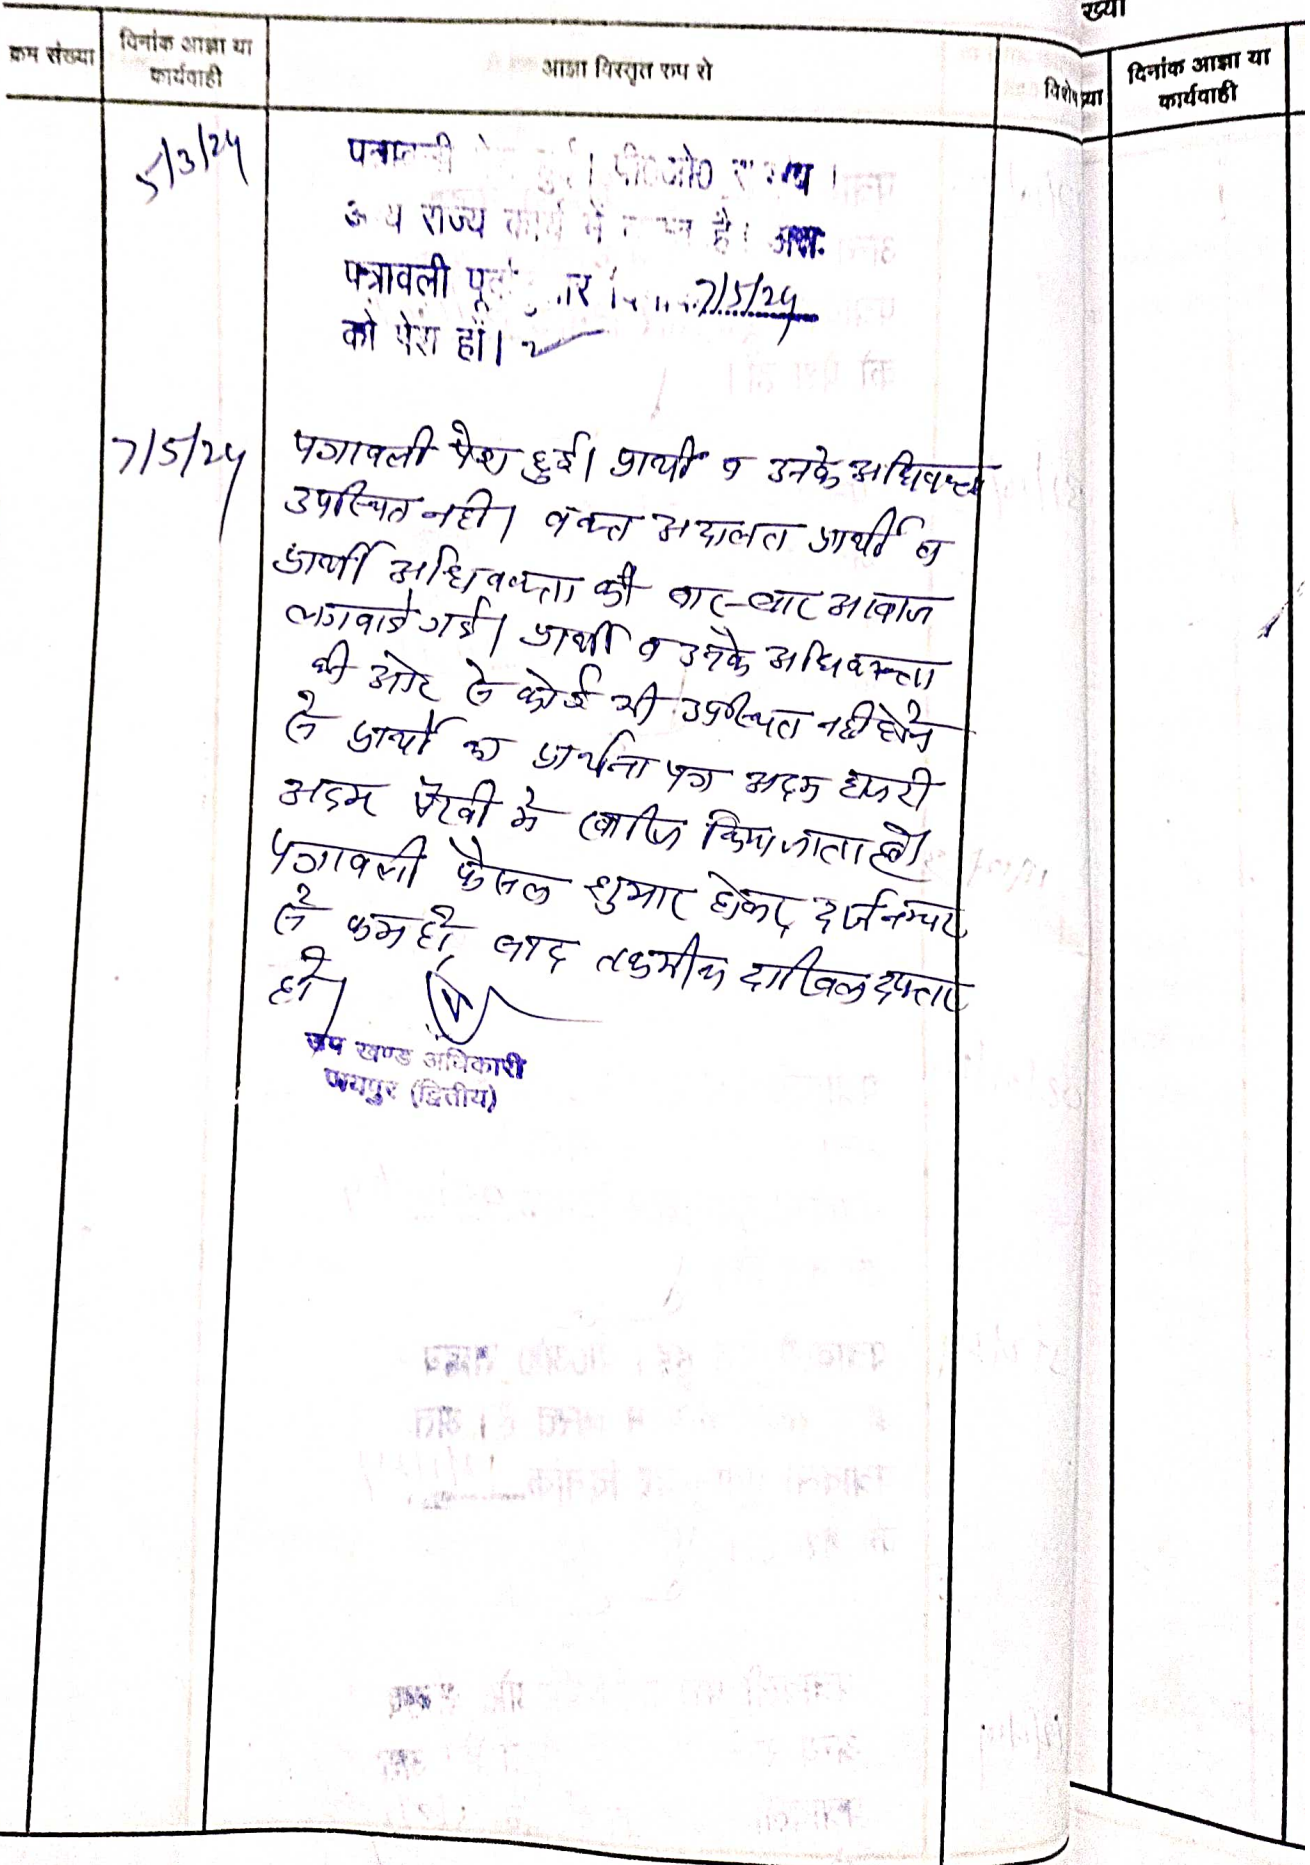 ख्या
क्रम संख्या
दिनांक आज्ञा या
कार्यवाही
आज्ञा विस्तृत रुप से
विशेष
ख्या
दिनांक आज्ञा या
कार्यवाही
5/3/24
पत्रावली हुई। पी०ओ०
राज्य कार्य में है। अतः
पत्रावली 7/5/24
को पेश हों।
7/5/24
पत्रावली पेश हुई। प्रार्थी व उनके अधिवक्ता
उपस्थित नही। वक्त अदालत प्रार्थी व
प्रार्थी अधिवक्ता को बार-बार आवाज
लगवाई गई। प्रार्थी व उनके अधिवक्ता
की ओर से कोई भी उपस्थित नही होने
से प्रार्थी का प्रार्थना पत्र अदम हाजरी
अदम पैरवी मे खारिज किया जाता है।
पत्रावली फैसल शुमार होकर दर्ज नम्बर
से कम हो बाद तकमील दाखिल दफ्तर
हो।
उप खण्ड अधिकारी
जयपुर (द्वितीय)